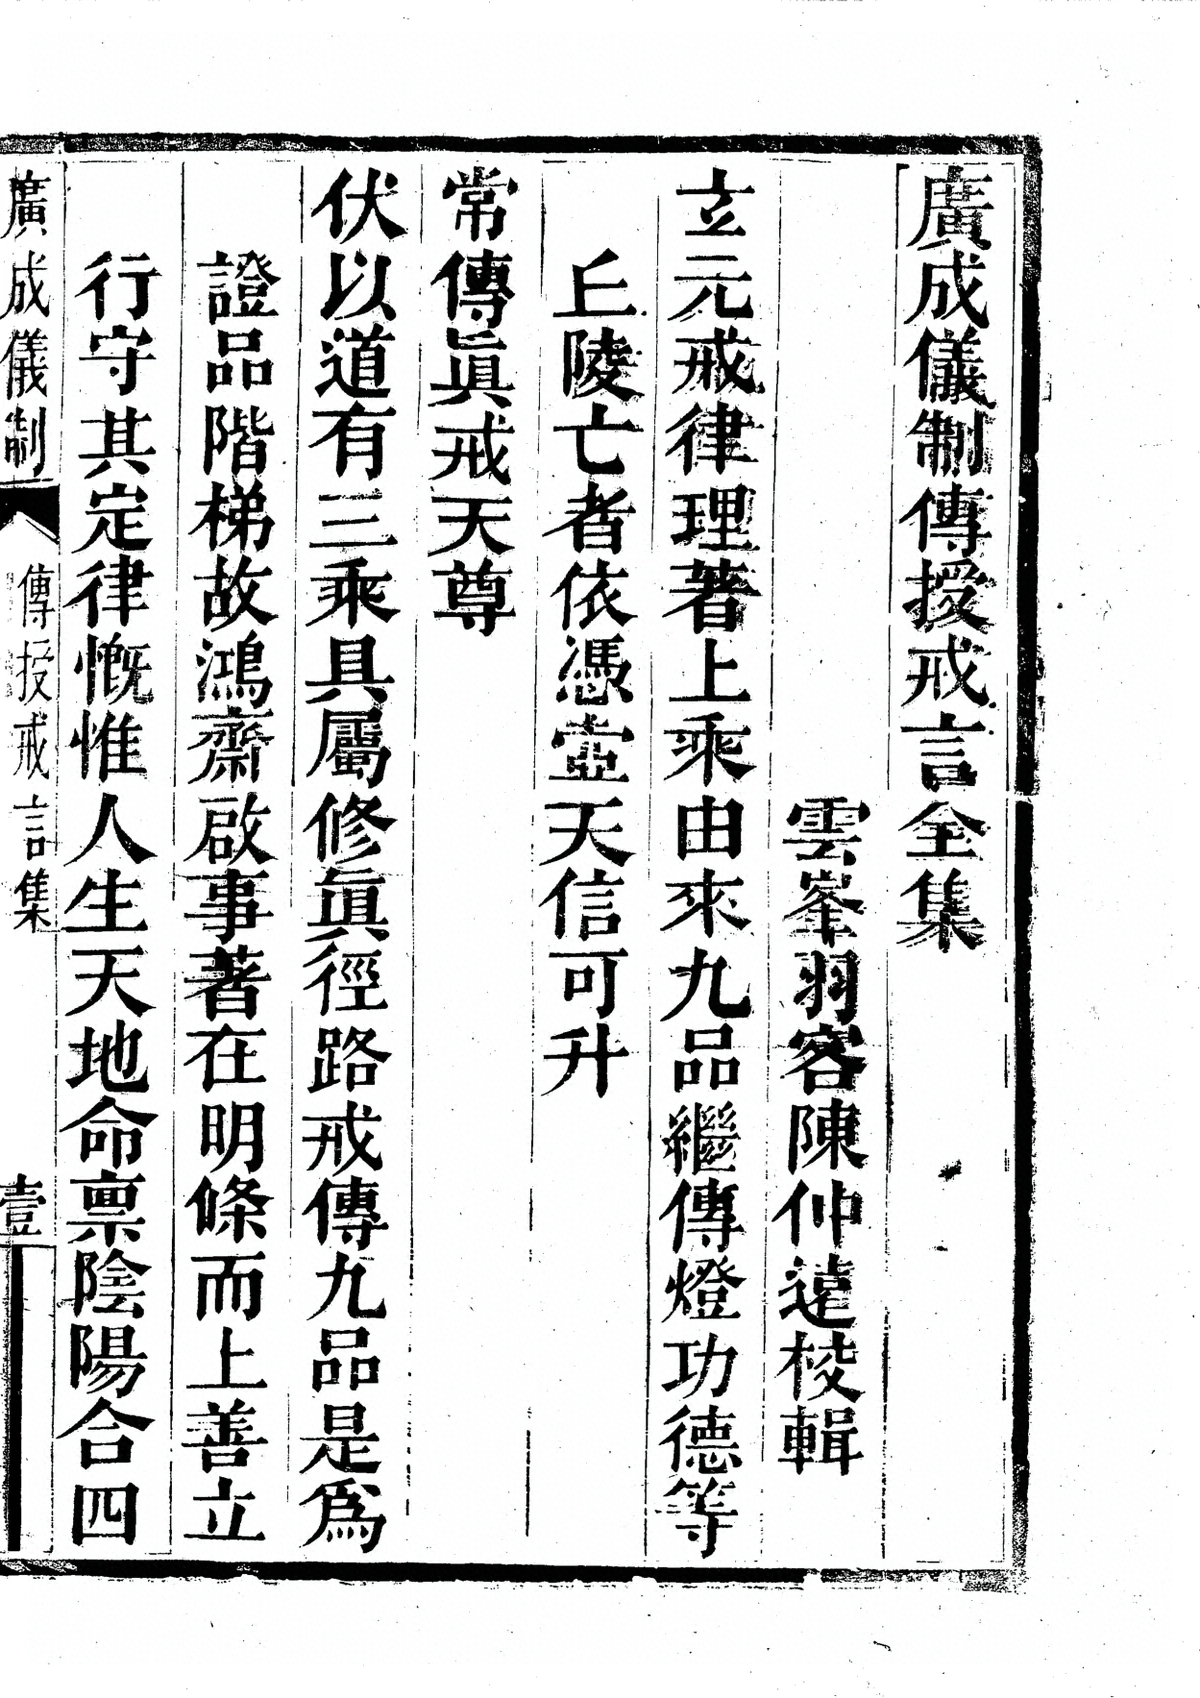 廣成儀制傳授戒言全集
雲峯羽客陳仲遠校輯
立元戒律理著上乘由來九品繼傳燈功德等
丘陵亡者依憑壼天信可升
常傳眞戒天尊
伏以道有三乘具屬修眞徑路戒傳九品是爲
證品階梯故鴻齋啟事著在明條而上善立
行守其定律慨惟人生天地命禀陰陽合四
廣成儀制 傳授戒言集 壹